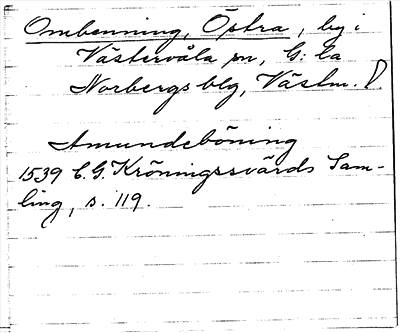 Ombenning, Östra, by i
Västervåla sn, G:la
Norbergs blg, Västm. 
Amundeböning
1539 C.G. Kröningssvärds Sam-
ling, s. 119.